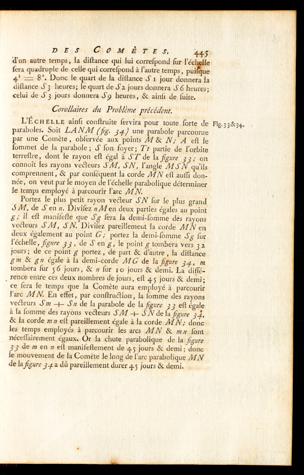 DES COMÈTES. 445
d'un autre temps, la distance qui lui correspond sur l'échelle
sera quadruple de celle qui correspond à l'autre temps, puisque
Donc le quart de la distance S 1 jour donnera la
distance S 3 heures; le quart de S 2 jours donnera S 6 heures;
celui de S 3 jours donnera S 9 heures, & ainsi de suite.
Corollaires du Problème précédent.
L'ÉCHELLE ainsi construite servira pour toute sorte de Fig. 33 & 34.
paraboles. Soit LANM (fig. 34) une parabole parcourue
par une Comète, observée aux points M & N; A est le
sommet de la parabole; S son foyer; Tt partie de l'orbite
terrestre, dont le rayon est égal à ST de la figure 33: on
connoît les rayons vecteurs SM, SN, l'angle MSN qu'ils
comprennent, & par conséquent la corde MN est aussi don-
née, on veut par le moyen de l'échelle parabolique déterminer
le temps employé à parcourir l'arc MN.
Portez le plus petit rayon vecteur SN sur le plus grand
SM, de S en n. Divisez nM en deux parties égales au point
g; il est manifeste que Sg sera la demi-somme des rayons
vecteurs SM, SN. Divisez pareillement la corde MN en
deux également au point G; portez la demi-somme Sg sur
l'échelle, figure 33, de S en g, le point g tombera vers 32
jours; de ce point g portez, de part & d'autre, la distance
gm & gn égale à la demi-corde MG de la figure 34. m
tombera sur 56 jours, & n sur 10 jours & demi. La diffé-
rence entre ces deux nombres de jours, est 45 jours & demi;
ce sera le temps que la Comète aura employé à parcourir
l'arc MN. En effet, par construction, la somme des rayons
vecteurs Sm + Sn de la parabole de la figure 33 est égale
à la somme des rayons vecteurs SM + SN de la figure 34,
& la corde mn est pareillement égale à la corde MN; donc
les temps employés à parcourir les arcs MN & mn sont
nécessairement égaux. Or la chute parabolique de la figure
33 de m en n est manifestement de 45 jours & demi; donc
le mouvement de la Comète le long de l'arc parabolique MN
de la figure 34 a dû pareillement durer 45 jours & demi.